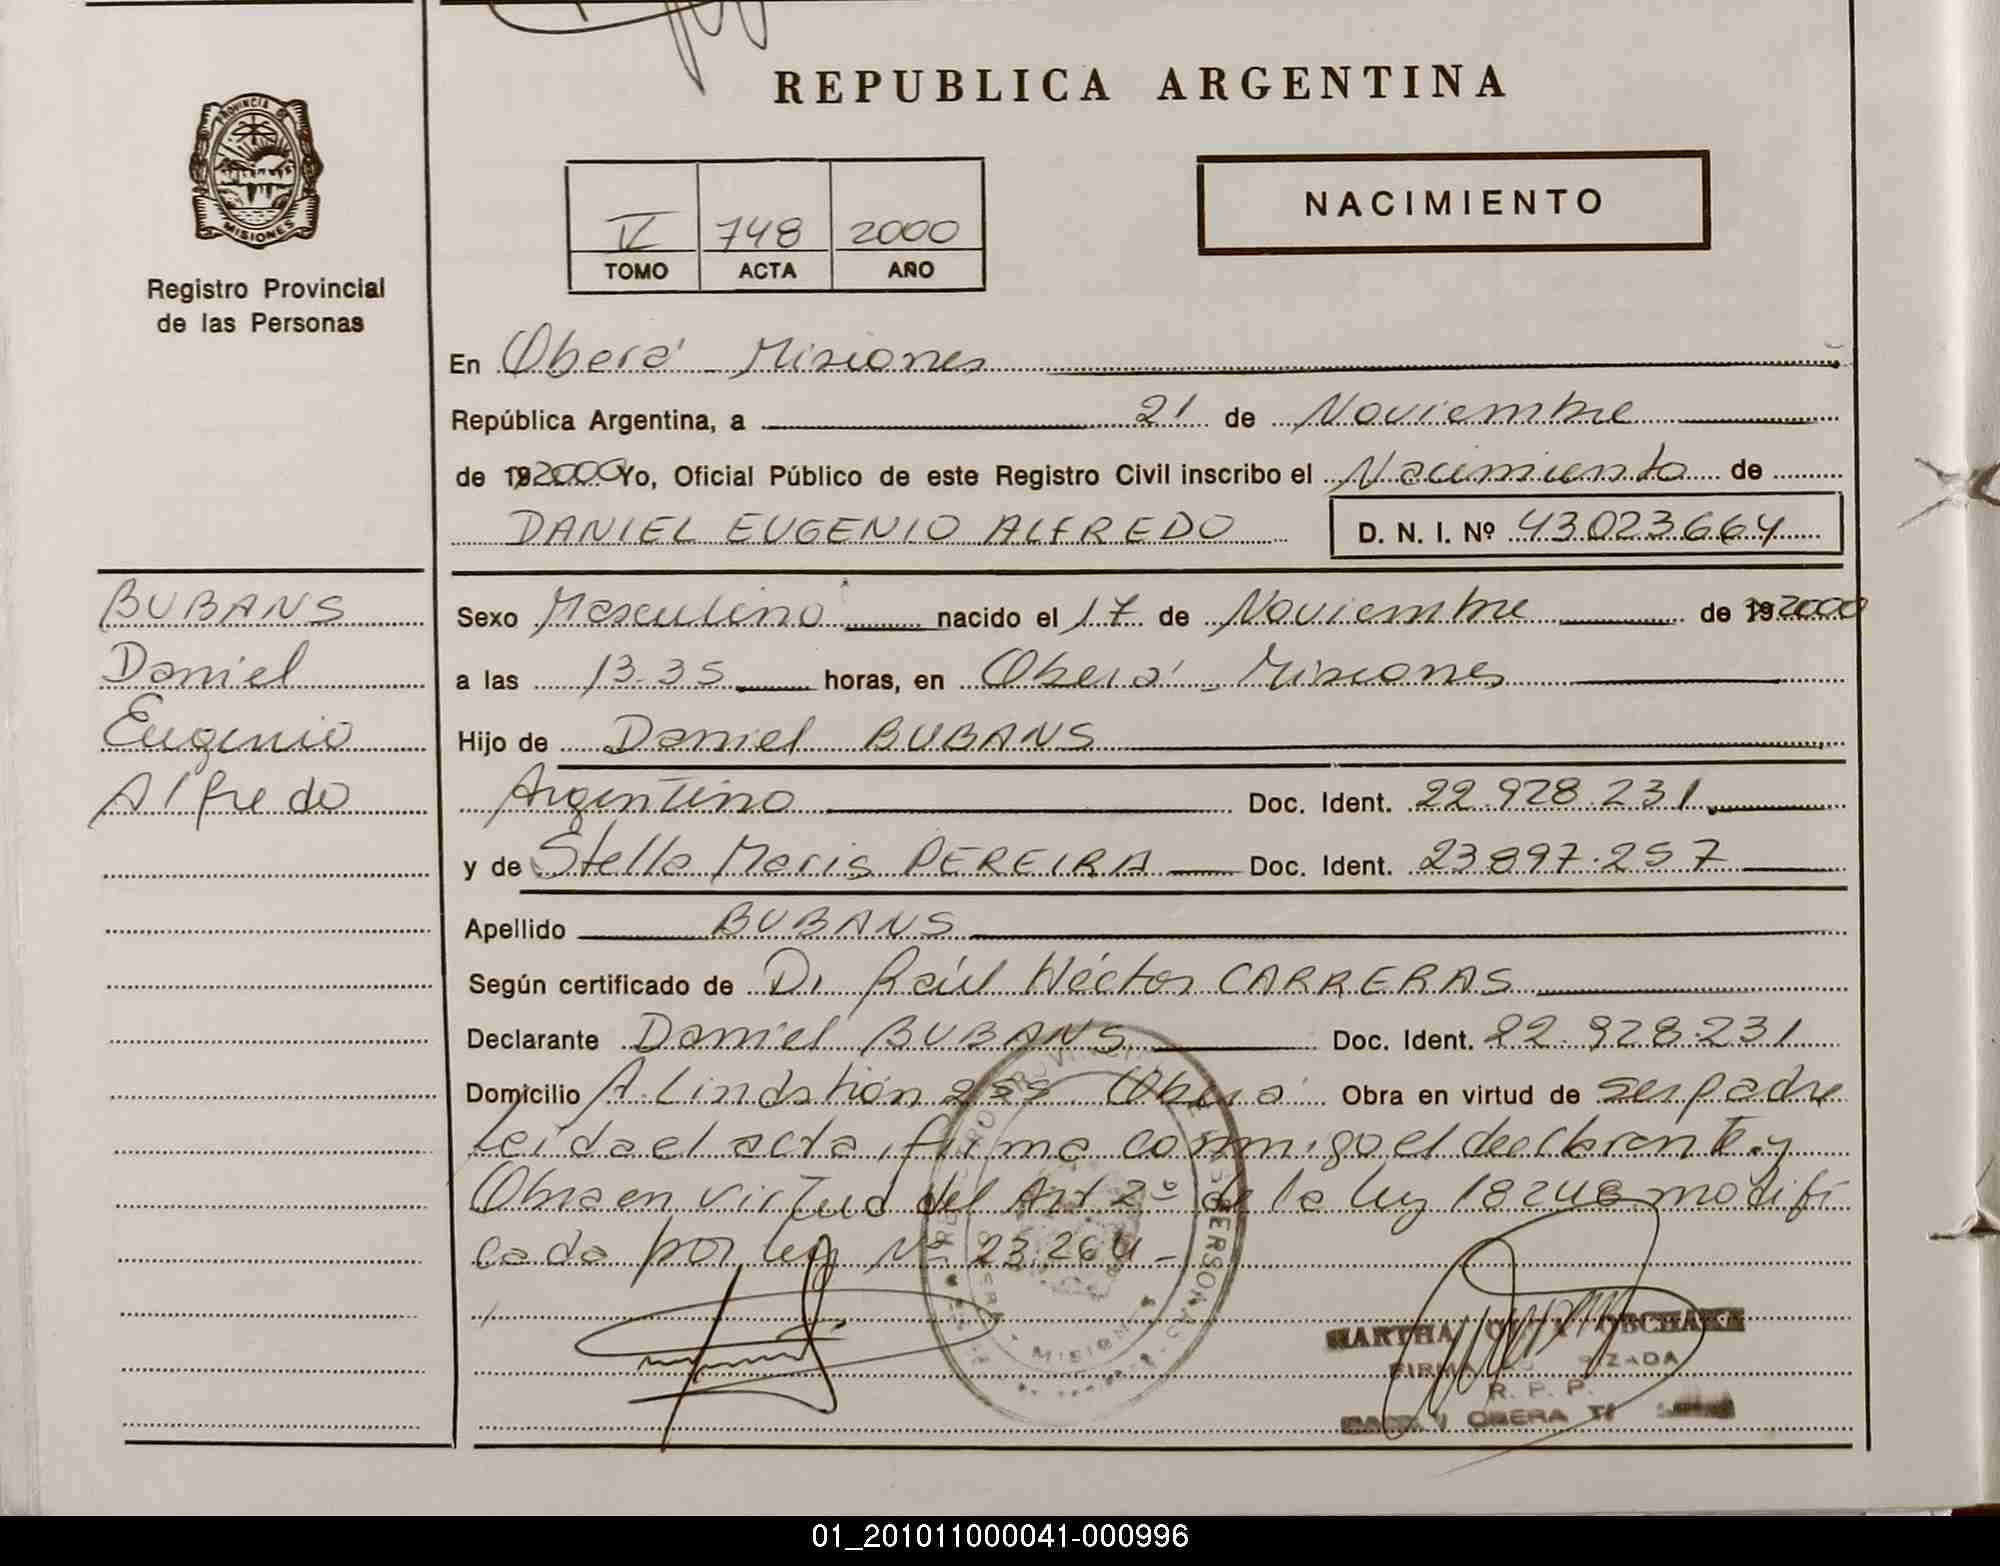 REPUBLICA ARGENTINA
PROVINCIA DE
MISIONES
Registro Provincial
de las Personas
NACIMIENTO
748 2000
TOMO ACTA AÑO
En Oberá - Misiones
República Argentina, a 21 de Noviembre
de 192000 Yo, Oficial Público de este Registro Civil inscribo el Nacimiento de
DANIEL EUGENIO ALFREDO D. N. I. Nº 43023664
BUBANS
Daniel
Eugenio
Alfredo
Sexo Masculino nacido el 17 de Noviembre de 192000
a las 13.35 horas, en Oberá - Misiones
Hijo de Daniel BUBANS
Argentino Doc. Ident. 22.928.231
y de Stella Maris PEREIRA Doc. Ident. 23.897.257
Apellido BUBANS
Según certificado de Dr Raúl Héctor CARRERAS
Declarante Daniel BUBANS Doc. Ident. 22.928.231
Domicilio A. Lindstrón 255 Oberá Obra en virtud de ser padre
leida el acta, firma conmigo el declarante y
Obra en virtud del Art 2º de la ley 18248 modifi
cada por ley Nº 23.264 -
PERSONAS
MARTHA
FIRMA
R. P. P.
OBERA
01_201011000041-000996